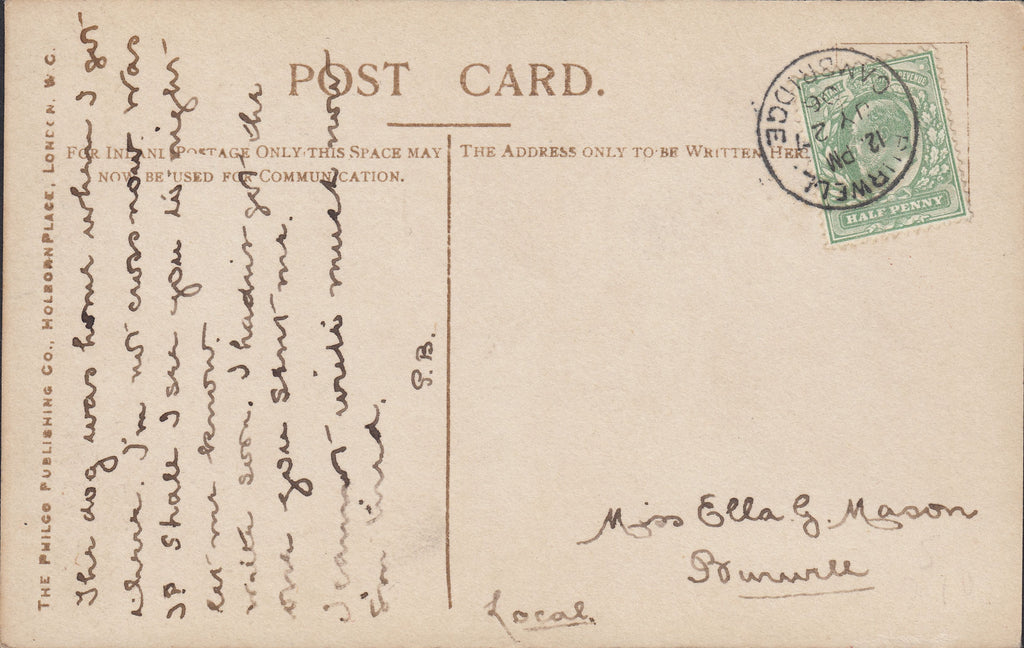 POST CARD.
FOR INLAND POSTAGE ONLY THIS SPACE MAY
NOW BE USED FOR COMMUNICATION.
THE ADDRESS ONLY TO BE WRITTEN HERE
THE PHILCO PUBLISHING CO., HOLBORN PLACE, LONDON. W.C.
The dog was home when I got
there. I'm not cross now. Was
I? Shall I see you to night
let me know.
write soon. I hadn't got the
one you sent me.
I cannot write much now
I'm tired.
G.B.
BURWELL
CAMBRIDGE
12. PM
JY 2
06
REVENUE
HALF PENNY
Miss Ella G. Mason
Burwell
Local.